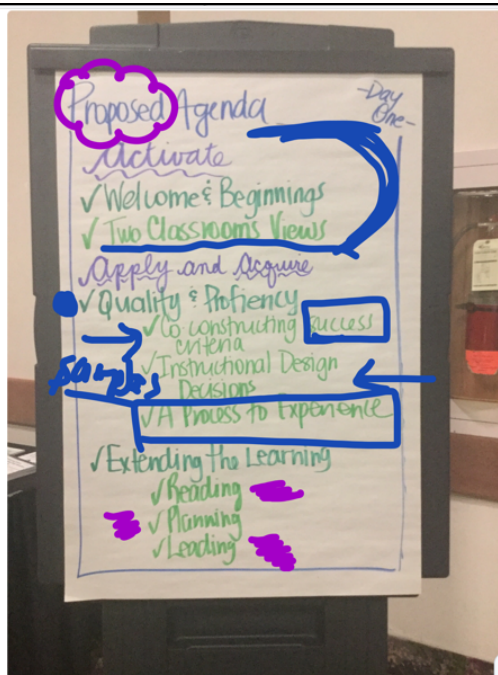 Proposed Agenda
-Day
One-
Activate
✓ Welcome & Beginnings
✓ Two Classrooms Views
Apply and Acquire
✓ Quality & Profiency
✓ Co constructing success
criteria
samples
✓ Instructional Design
Decisions
✓ A Process to Experience
✓ Extending the Learning
✓ Reading
✓ Planning
✓ Leading